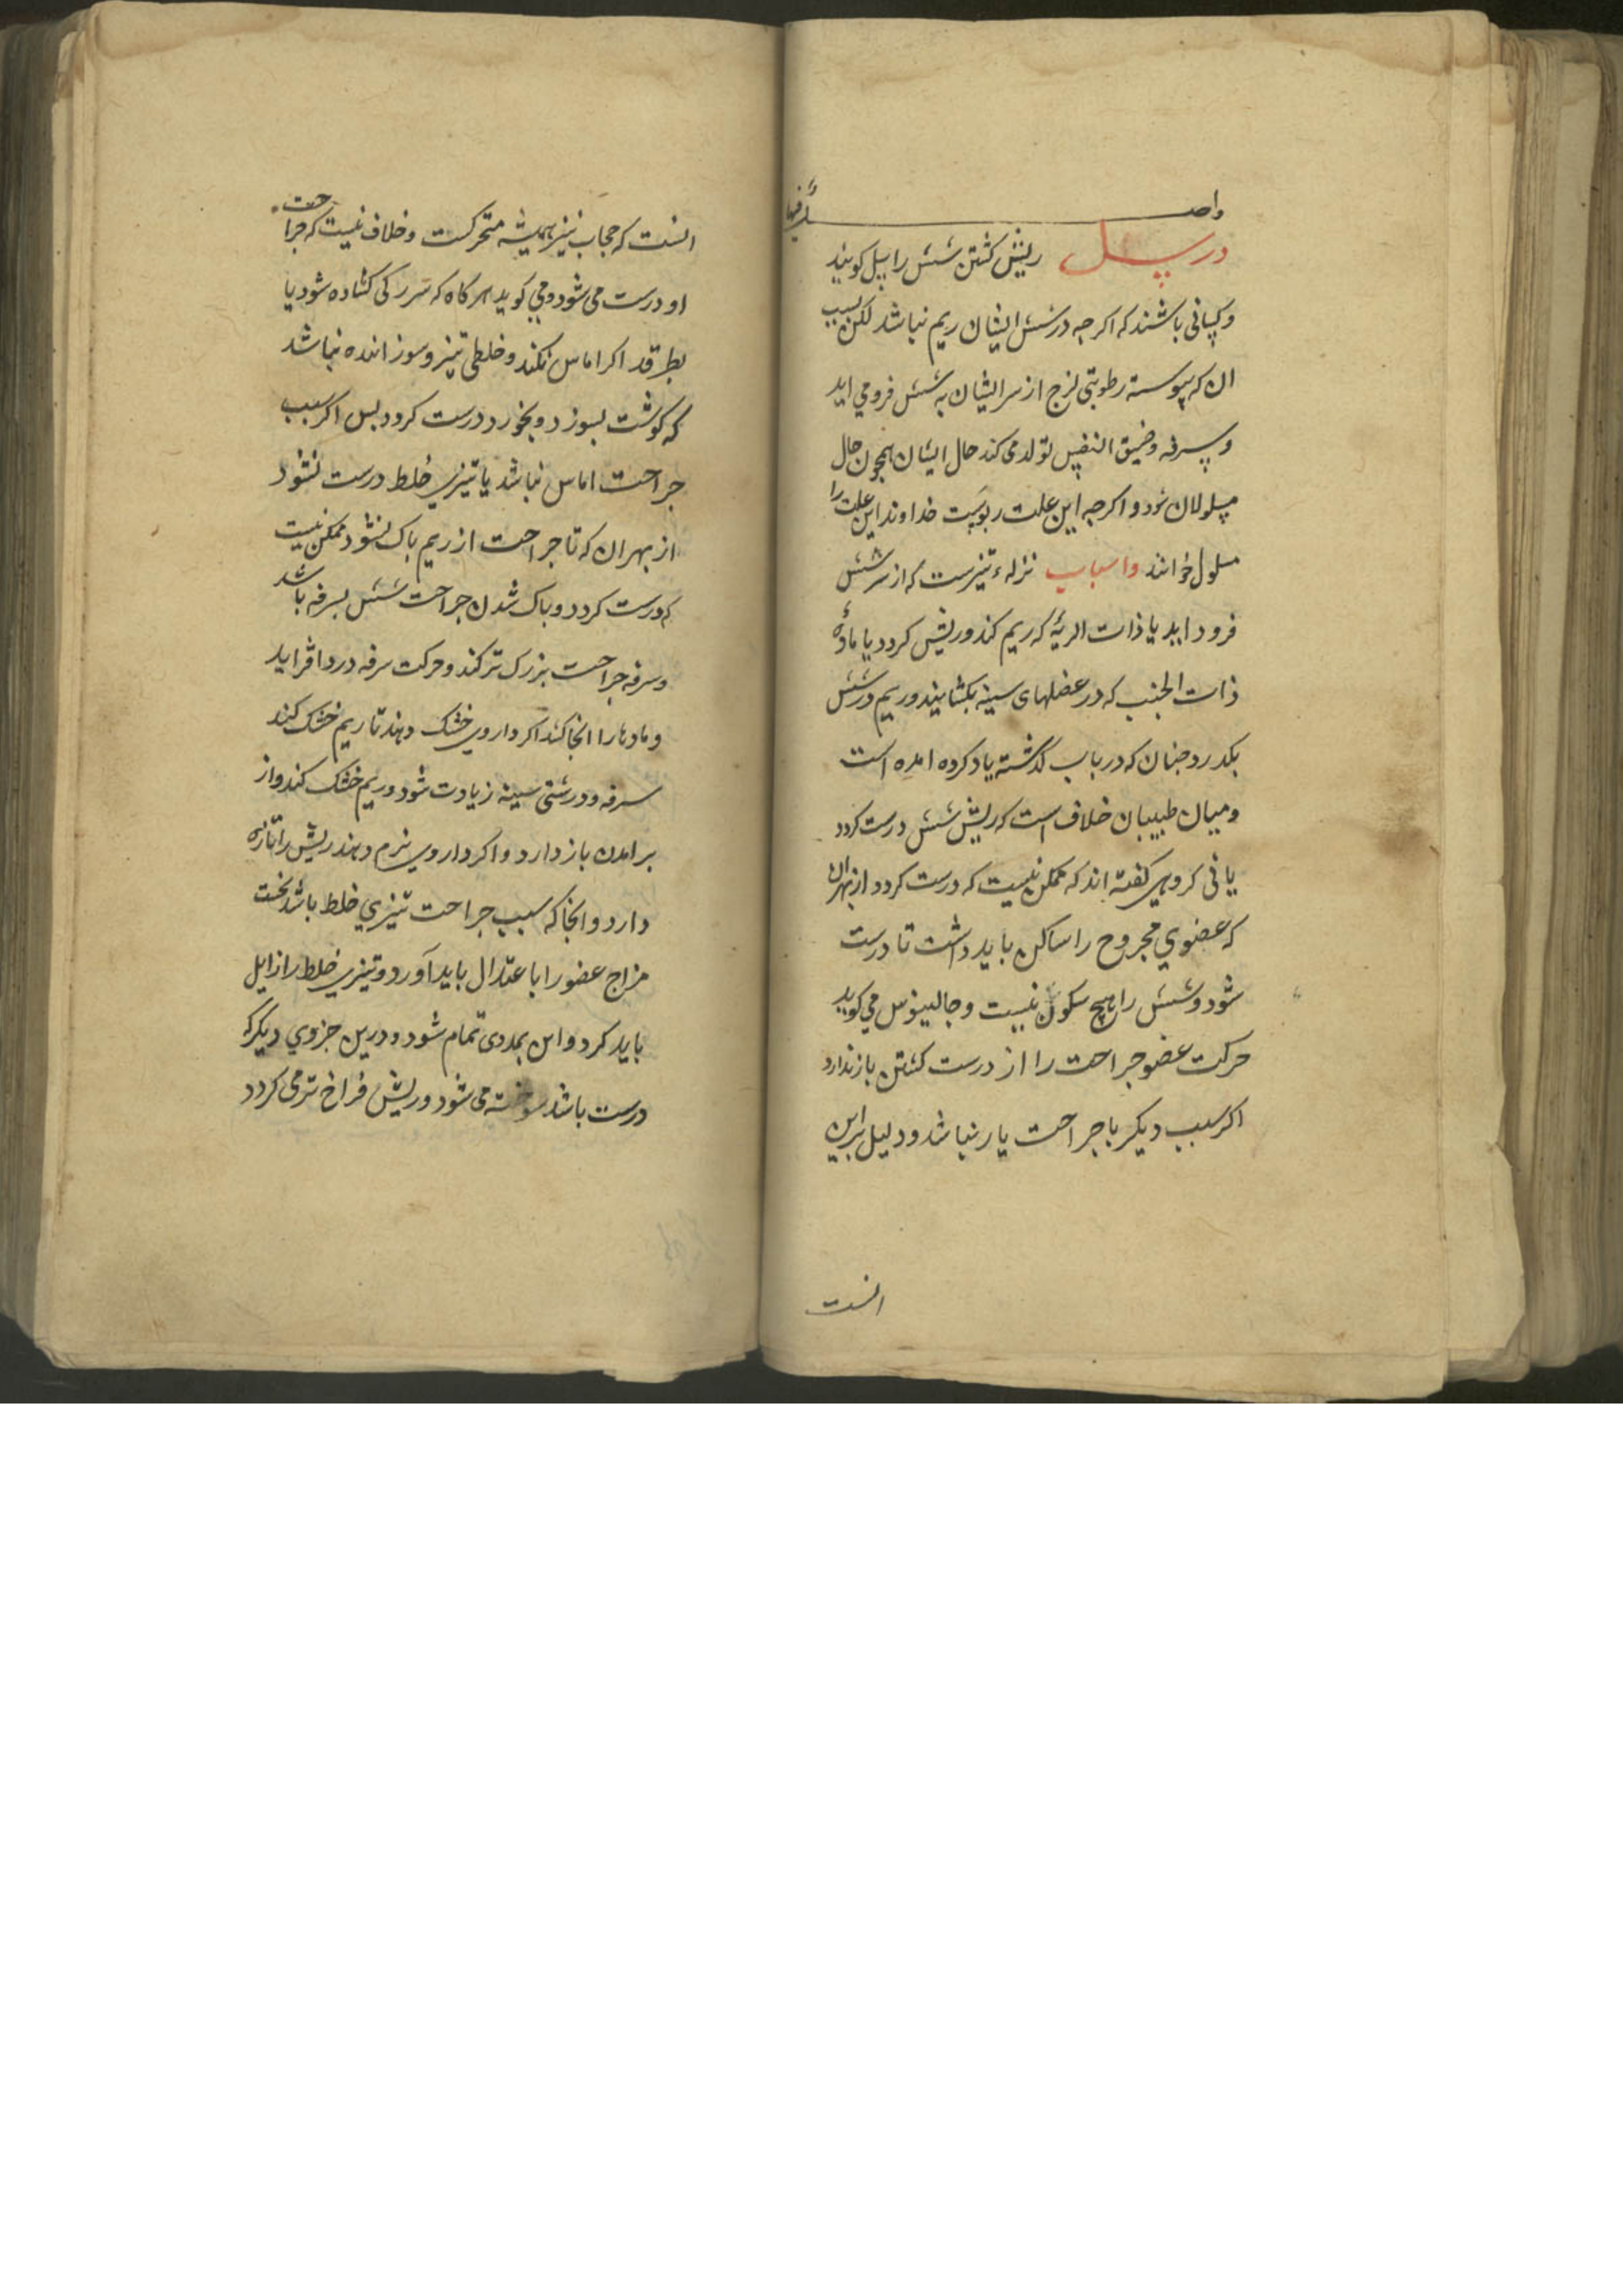 واحد
در سل ریش کشتن شش را سل کویند
وکسانی باشند که اکرچه در شش ایشان ریم نباشد لکن بسبب
ان که پیوسته رطوبتی لزج از سر ایشان به شش فرو می اید
وسرفه وضیق النفس تولد می کند حال ایشان همچون حال
مسلولان بود و اکرچه این علت ربوست خداوند این علت را
مسلول خوانند واسباب نزلهء تیزست که از سر شش
فرود اید یا ذات الریه که ریم کند وریش کردد یا مادهٔ
ذات الجنب که در عضلهای سینه بکشایند وریم در شش
بکدرد چنان که در باب کذشته یاد کرده امده است
ومیان طبیبان خلاف است که ریش شش درست کردد
یا نی کروهی کفته اند که ممکن نیست که درست کردد از بهران
که عضوی مجروح را ساکن باید داشت تا درست
شود وشش را هیچ سکون نیست وجالینوس می کوید
حرکت عضو جراحت را از درست کشتن باز ندارد
اکر سبب دیکر با جراحت یار نباشد ودلیل براین
انست
انست که حجاب نیز همیشه متحرکست وخلاف نیست که جراحت
او درست می شود ومی کوید هرکاه که سر رکی کشاده شود یا
بطرقد اکر اماس نکند وخلطی تیز وسوزاننده نباشد
که کوشت بسوزد وبخورد درست کردد بس اکر سبب
جراحت اماس نباشد یا تیزی خلط درست نشود
از بهران که تا جراحت از ریم باک نشود ممکن نیست
که درست کردد وباک شدن جراحت شش بسرفه باشد
وسرفه جراحت بزرک تر کند وحرکت سرفه درد افزاید
ومادها را انجا کشد اکر داروی خشک دهند تا ریم خشک کند
سرفه ودرشتی سینه زیادت شود وریم خشک کند واز
برامدن باز دارد واکر داروی نرم دهند ریش را تازه
دارد وانجا که سبب جراحت تیزی خلط باشد نخست
مزاج عضو را با عتدال باید آورد وتیزی خلط را زایل
باید کرد واین بمدتی تمام شود ودرین جزوی دیکر که
درست باشد سوخته می شود وریش فراخ تر می کردد